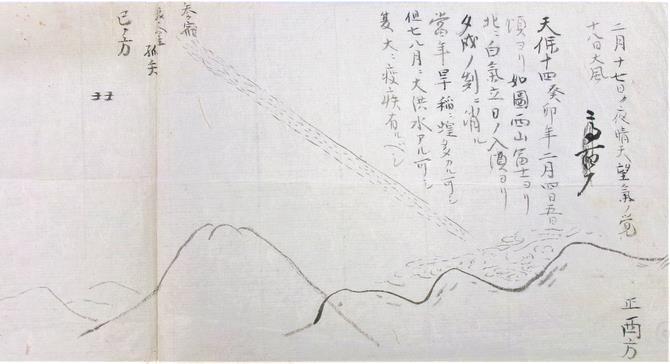 二月十七日ノ夜晴天望氣ノ覚
十八日大風
天保十四癸卯年二月四日五日
頃ヨリ如圖西山冨士ヨリ
北ニ白氣立日ノ入頃ヨリ
夕戌ノ刻ニ消ル
當年旱稲ニ蝗多カル可シ
但七八月ニ大洪水アル可シ
夏大ニ疫疾有ルベシ
参宿
巳ノ方
正酉方